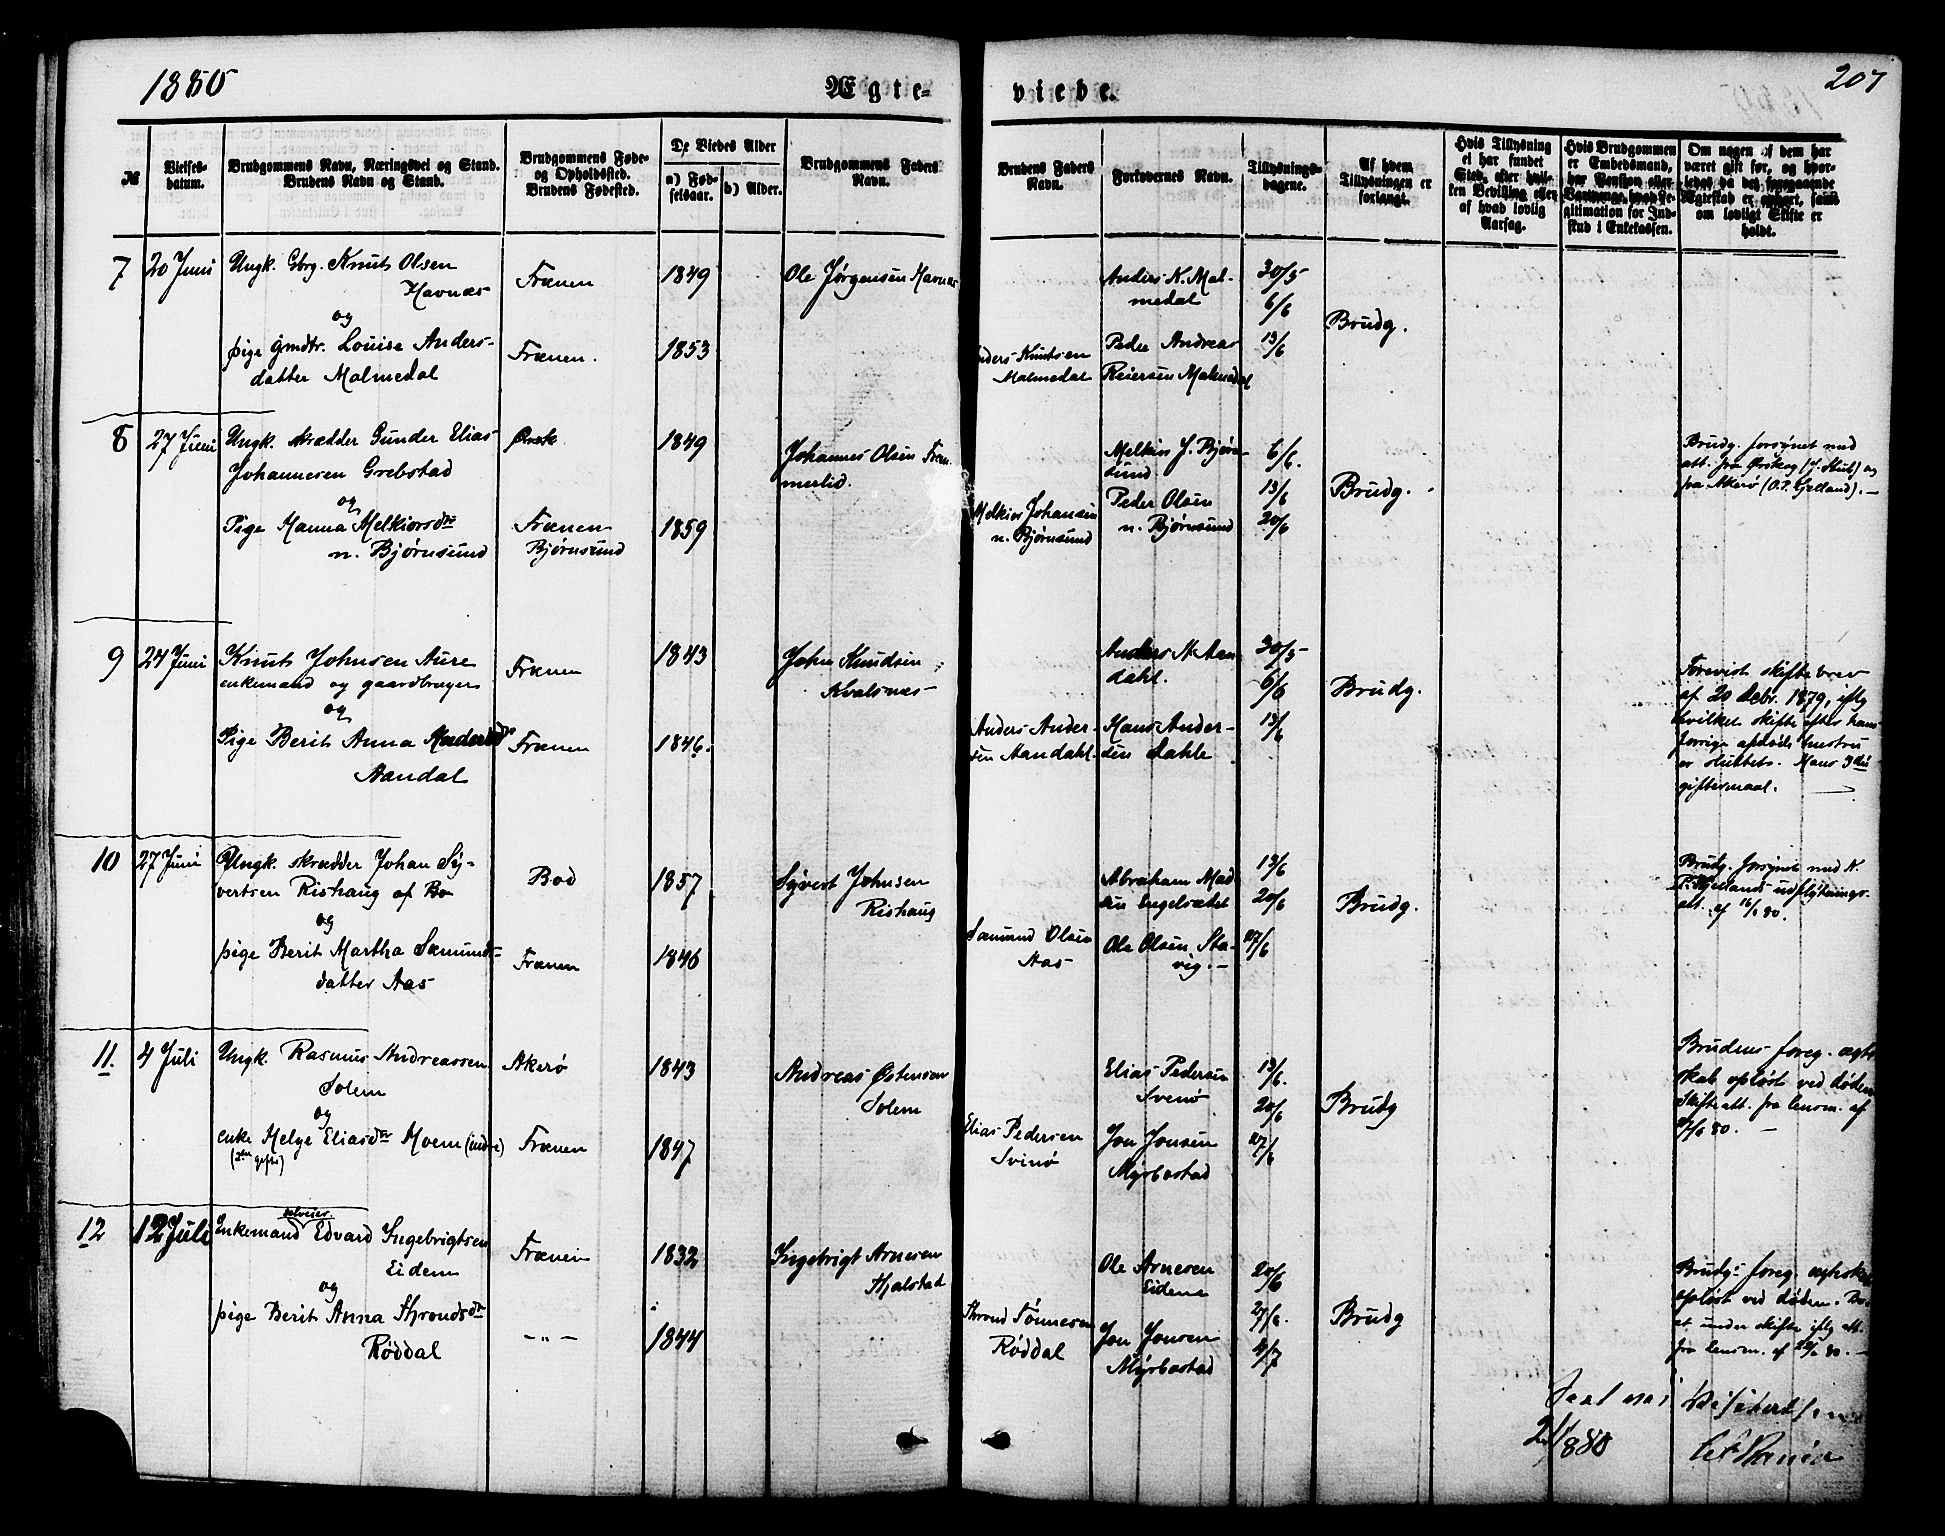 1880
Ægte-
viede.
207
№
Vielses-
datum.
Brudgommens Navn, Næringsvei og Stand.
Brudens Navn og Stand.
Brudgommens Føde-
og Opholdssted.
Brudens Fødested.
De Viedes Alder
a) Fød-
selsaar.
b) Alder.
Brudgommens Faders
Navn.
Brudens Faders
Navn.
Forlovernes Navn.
Tillysnings-
dagene.
Af hvem
Tillysningen er
forlangt.
Hvis Tillysning
ei har fundet
Sted, efter hvil-
ken Bevilling eller
af hvad lovlig
Aarsag.
Hvis Brudgommen
er Embedsmand,
har Pension eller
Vartpenge, hvad Le-
gitimation for Ind-
skud i Enkekassen.
Om nogen af dem har
været gift før, og hvor-
ledes da det foregaaende
Ægteskab er ophørt, samt
om lovligt Skifte er
holdt.
7
20 Juni
Ungk. Gbrg. Knut Olsen
Havnæs
og
pige gmdtr. Louise Anders-
datter Malmedal
Frænen
Frænen.
1849
1853
Ole Jørgensen Havnæs
Knutsen
Malmedal
Anders K. Mal-
medal
Peder Andreas
Reiersen Malmedal
30/5
6/6
13/6
Brudg.
8
27 Juni
Ungk. skrædder Gunder Elias
Johannesen Grebstad
og
Pige Hanna Melkiorsdtr
n. Bjørnsund
Ørsk
Frænen
Bjørnsund
1849
1859
Johannes Olsen
merlid.
Melkior Johansen
n. Bjørnsund
Melkior J. Bjørn-
sund
Peder Olsen
n. Bjørnsund
6/6.
13/6
20/6
Brudg.
Brudg. forsynet med
att. fra Ørskog (J. Stub) og
fra Akerø (O.P. Gjelland). —
9
24 Juni
Knut Johnsen Aure
enkemand og gaardbruger
og
Pige Berit Anna Andersdtr
Aandal
Frænen
Frænen
1843
1846.
John Knudsen
Kvalsnæs
Anders Ander-
sen Aandahl.
Anders A. Aan-
dahl.
Hans Ander-
sen Dahle
30/5
6/6
13/6
Brudg.
Forevist skiftebrev
af 20 Debr. 1879, iflg
hvilket skifte efter hans
forrige afdøde hustru
er sluttet. Hans 3die
giftermaal. —
10
27 Juni
Ungk. skrædder Johan Sy-
vertsen Rishaug af Bo
og
pige Berit Martha Sæmunds-
datter Aas
Bod
Frænen
1857
1846
Syvert Johnsen
Rishaug
Sæmund Olsen
Aas
Abraham Mad
sen Engelsætet
Ole Olsen Sta-
vig. —
13/6
20/6
27/6
Brudg.
Brudg. forsynet med K.
P. Gjellands udflytnings-
att. af 16/6 80.
11.
4 Juli
Ungk. Rasmus Andreassen
Solem
og
enke Helge Eliasdtr Moem (indre)
(2den gifte)
Akerø
Frænen
1843
1847
Andreas Østensen
Solem
Elias Pedersen
Svinø
Elias Pedersen
Svinø
Jon Jonsen
Myrbostad
13/6.
20/6
27/6
Brudg
Brudens foreg. ægte
skab opløst ved døden
Skifteatt. fra lensm. af
9/6 80. —
12
12 Juli
Enkemand selveier. Edvard Ingebrigtsen
Eidem
og
pige Berit Anna Throndsdtr
Røddal
Frænen
— " —
1832
1844
Ingebrigt Arnesen
Hjalstad
Thrond Tønnesen
Røddal
Ole Arnesen
Eidem
Jon Jonsen
Myrbostad
20/6
27/6.
4/7
Brudg
Brudgs foreg. ægteskab
opløst ved døden. Bo-
et under skifte iflg att.
fra lensm. af 22/6 80. —
2 1/1880